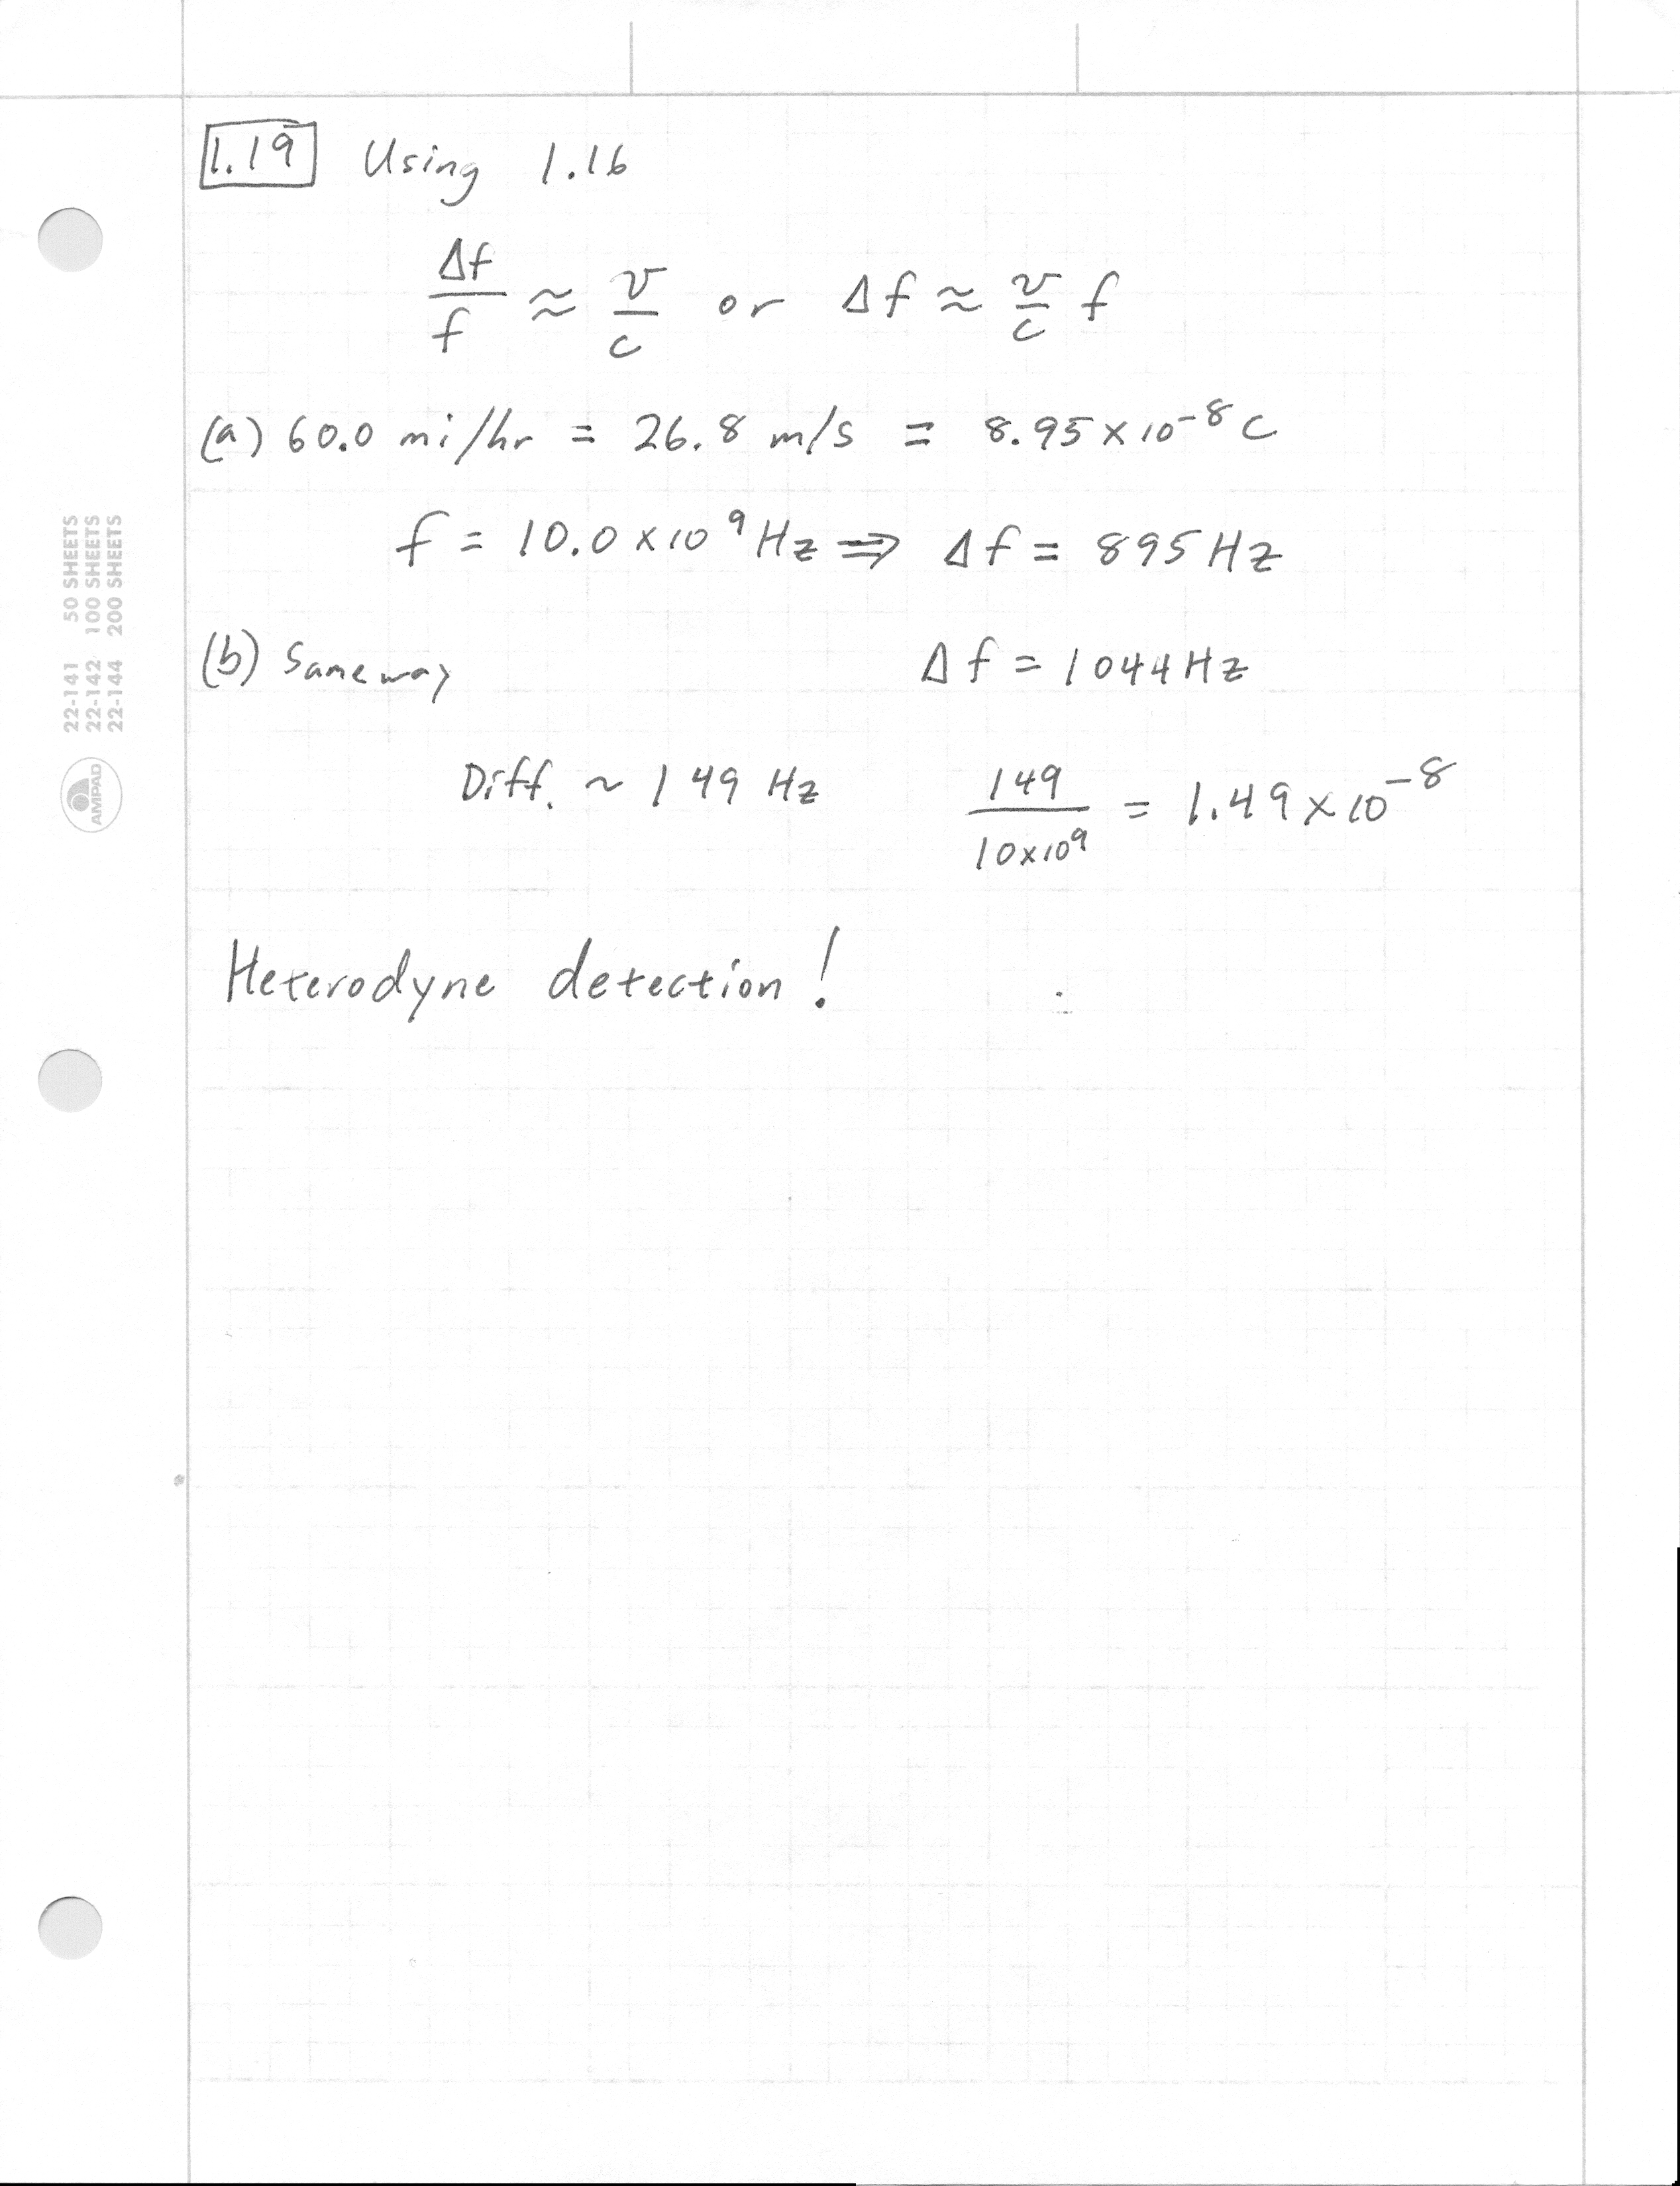 1.19 Using 1.16
Δf/f ≈ v/c or Δf ≈ v/c f
(a) 60.0 mi/hr = 26.8 m/s = 8.95 × 10⁻⁸ c
f = 10.0 × 10⁹ Hz ⇒ Δf = 895 Hz
(b) Same way Δf = 1044 Hz
Diff. ~ 149 Hz 149/10×10⁹ = 1.49 × 10⁻⁸
Heterodyne detection!
22-141 50 SHEETS
22-142 100 SHEETS
22-144 200 SHEETS
AMPAD